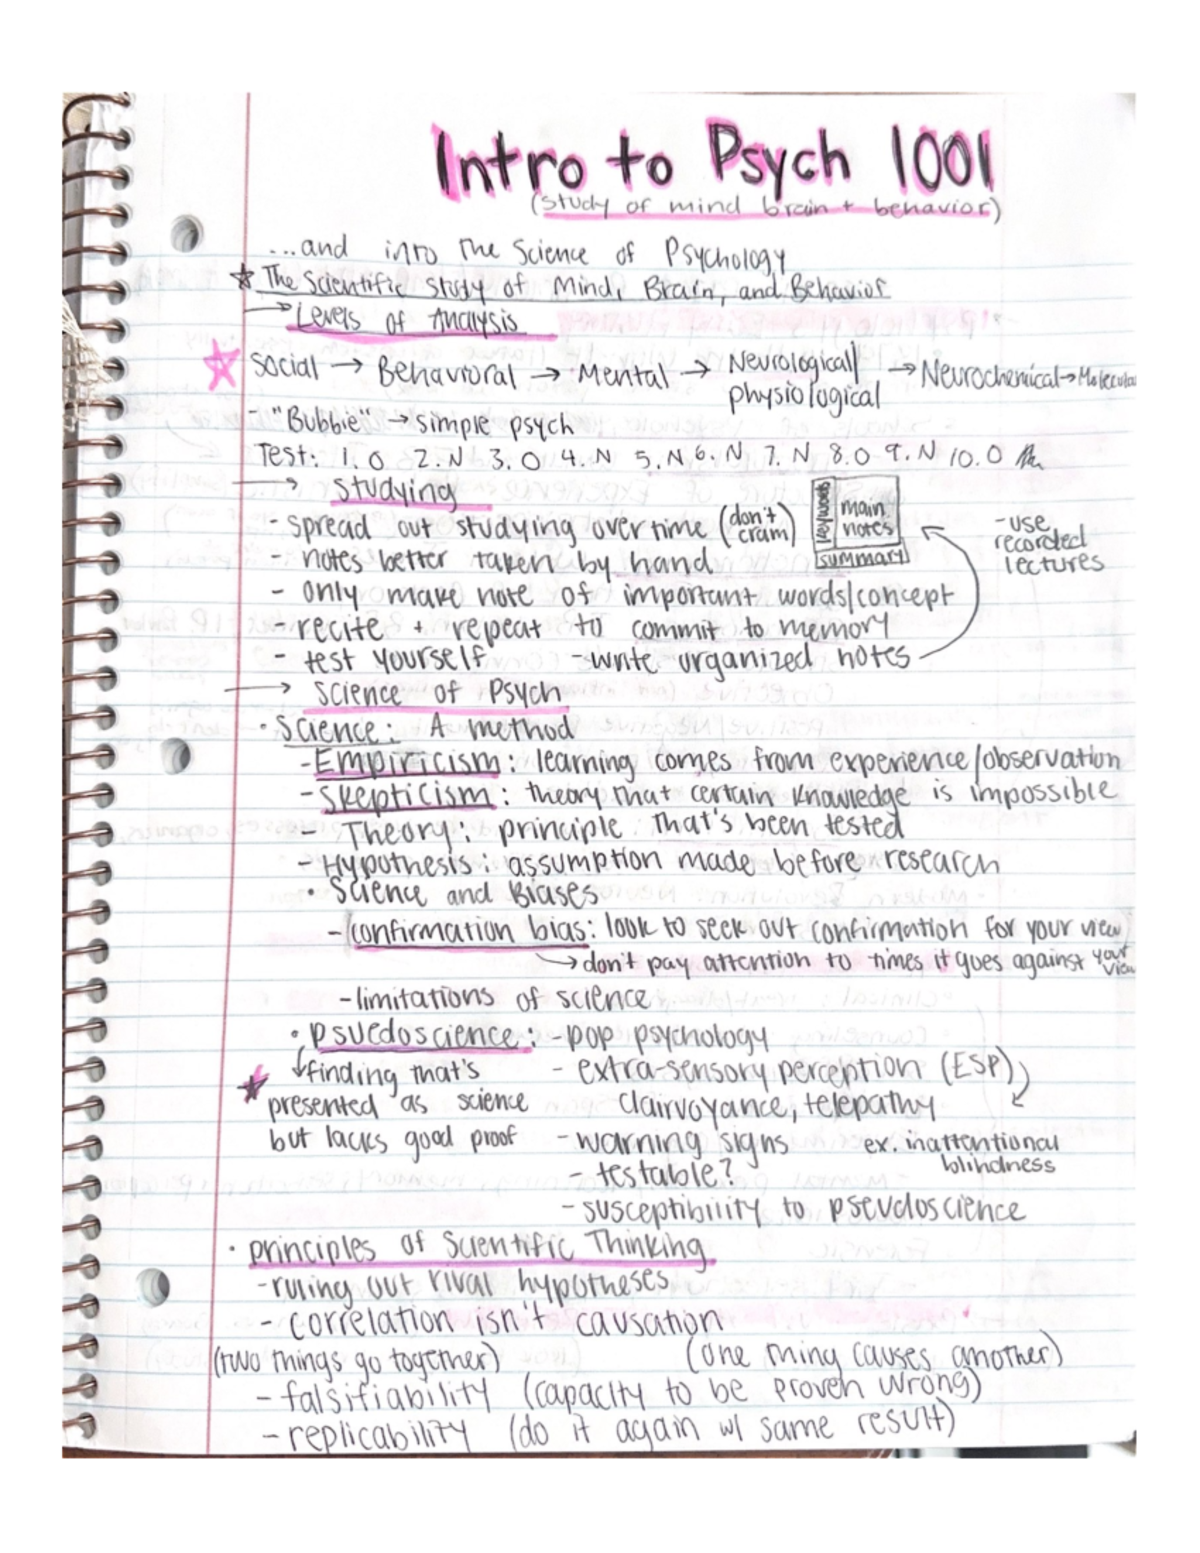 Intro to Psych 1001
(study of mind brain + behavior)
...and into the Science of Psychology
☆ The Scientific Study of Mind, Brain, and Behavior
→ Levels of Analysis
☆ Social → Behavioral → Mental → Neurological/ physiological → Neurochemical → Molecular
- "Bubbie" → simple psych
Test: 1. O 2. N 3. O 4. N 5. N 6. N 7. N 8. O 9. N 10. O
→ Studying
- spread out studying over time (don't cram)
keywords main notes
summary
- use recorded lectures
- notes better taken by hand
- only make note of important words/concept
- recite + repeat to commit to memory
- test yourself - write organized notes
→ Science of Psych
• Science: A method
- Empiricism: learning comes from experience/observation
- Skepticism: theory that certain knowledge is impossible
- Theory: principle that's been tested
- Hypothesis: assumption made before research
• Science and Biases
- confirmation bias: look to seek out confirmation for your view
→ don't pay attention to times it goes against your view
- limitations of science
• psuedoscience: - pop psychology
↓ finding that's - extra-sensory perception (ESP)
☆ presented as science clairvoyance, telepathy
but lacks good proof - warning signs ex. inattentional blindness
- testable?
- susceptibility to pseudoscience
• principles of Scientific Thinking
- ruling out rival hypotheses
- correlation isn't causation
(two things go together) (one thing causes another)
- falsifiability (capacity to be proven wrong)
- replicability (do it again w/ same result)